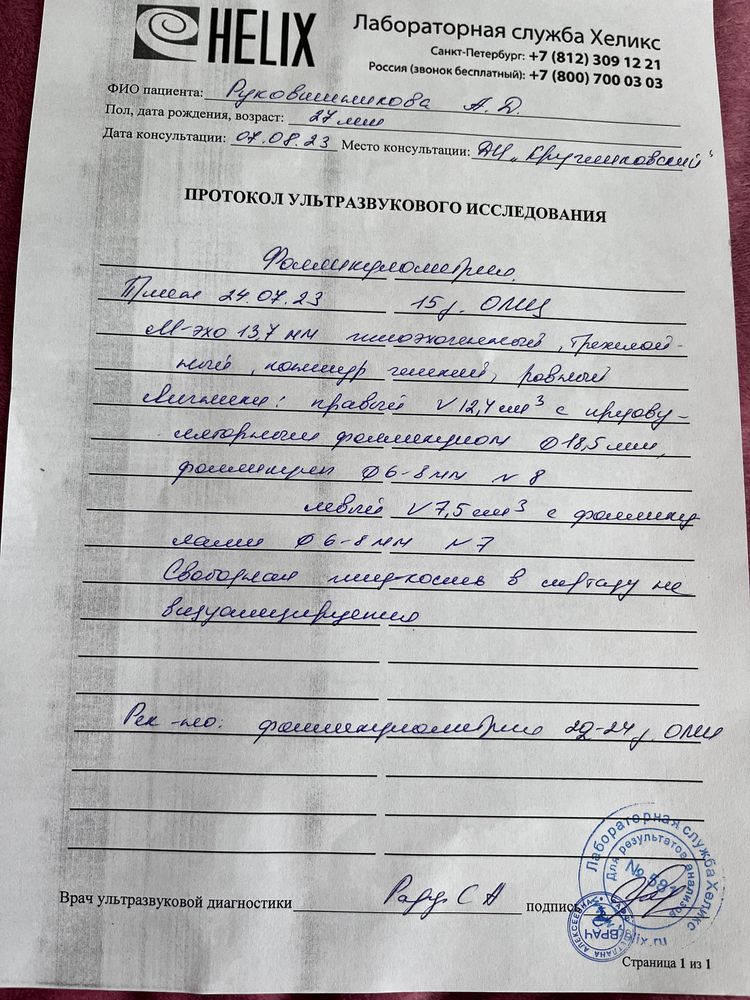 HELIX
Лабораторная служба Хеликс
Санкт-Петербург: +7 (812) 309 12 21
Россия (звонок бесплатный): +7 (800) 700 03 03
ФИО пациента: Руковишникова А.Д.
Пол, дата рождения, возраст: 27 лет
Дата консультации: 07.08.23 Место консультации: ДЦ „Кругликовский"
ПРОТОКОЛ УЛЬТРАЗВУКОВОГО ИССЛЕДОВАНИЯ
Фолликулометрия.
24.07.23 15 д. ОМЦ
М-эхо 13,7 мм гипоэхогенный, трехслой-
ный, контур четкий, ровный
Яичники: правый V 12,4 см³ с преову-
ляторным фолликулом Ø 18,5 мм,
фолликулы Ø 6-8 мм N 8
левый V 7,5 см³ с фоллику
лами Ø 6-8 мм N 7
Свободная жидкость в м/тазу не
визуализируется
Рек-но: фолликулометрия 22-24 д. ОМЦ
Врач ультразвуковой диагностики С А подпись
Лабораторная служба Хеликс
Для результатов анализов
ВРАЧ
АЛЕКСЕЕВНА
helix.ru
Страница 1 из 1